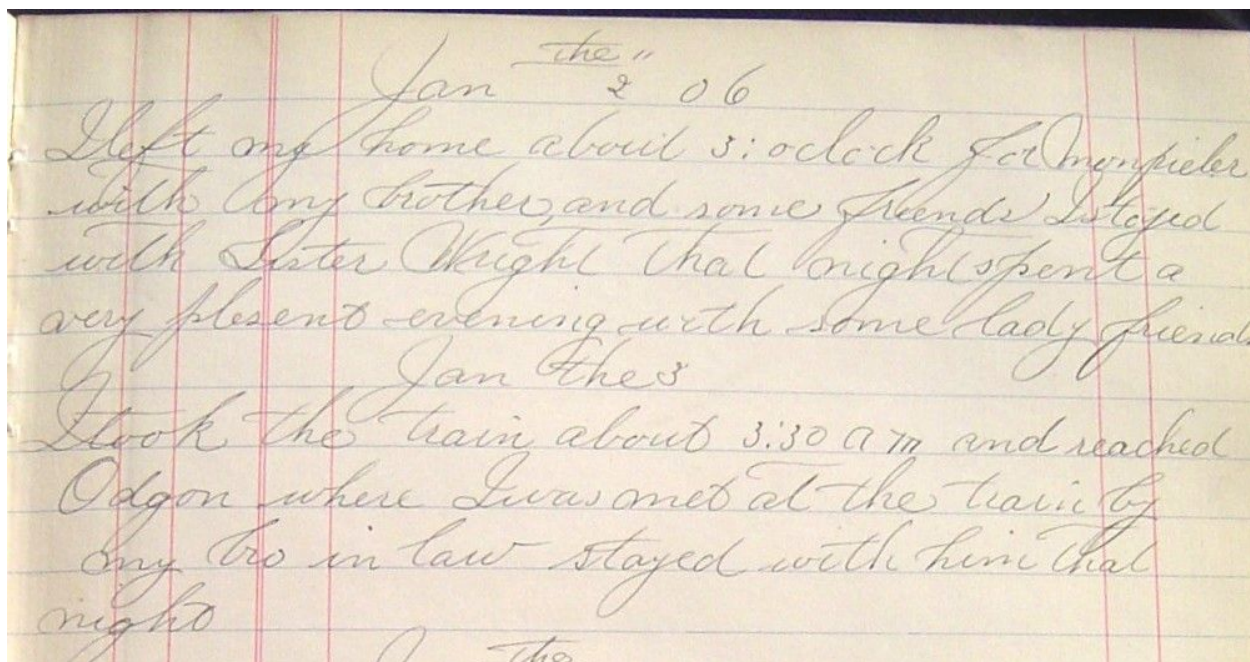 Jan the 2" 06
I left my home about 3: oclock for Monpieler
with my brother, and some friends I stayed
with Sister Wright that night spent a
very plesent evening with some lady friends
Jan the 3
I took the train about 3:30 a m and reached
Odgon where I was met at the train by
my bro in law stayed with him that
night
the